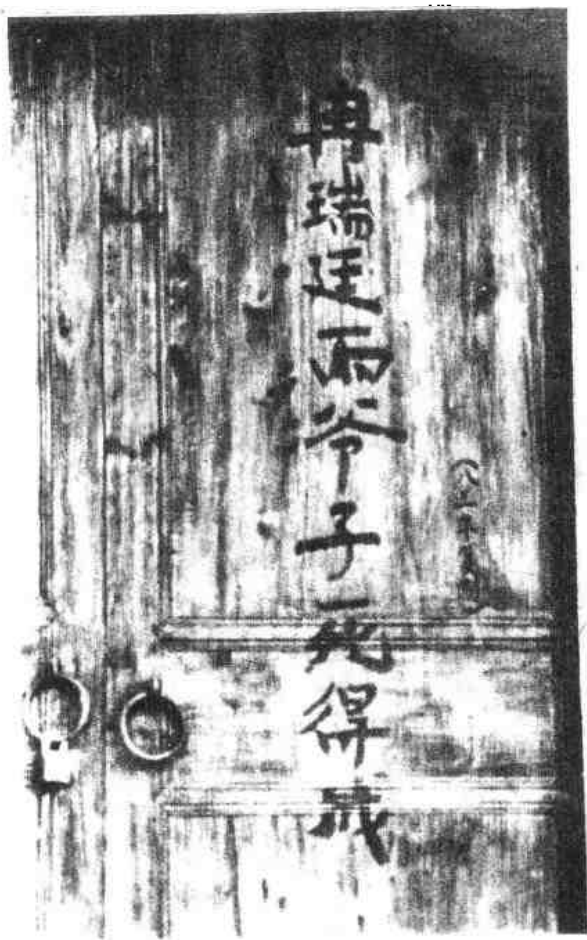 冉瑞廷两爷子死得成